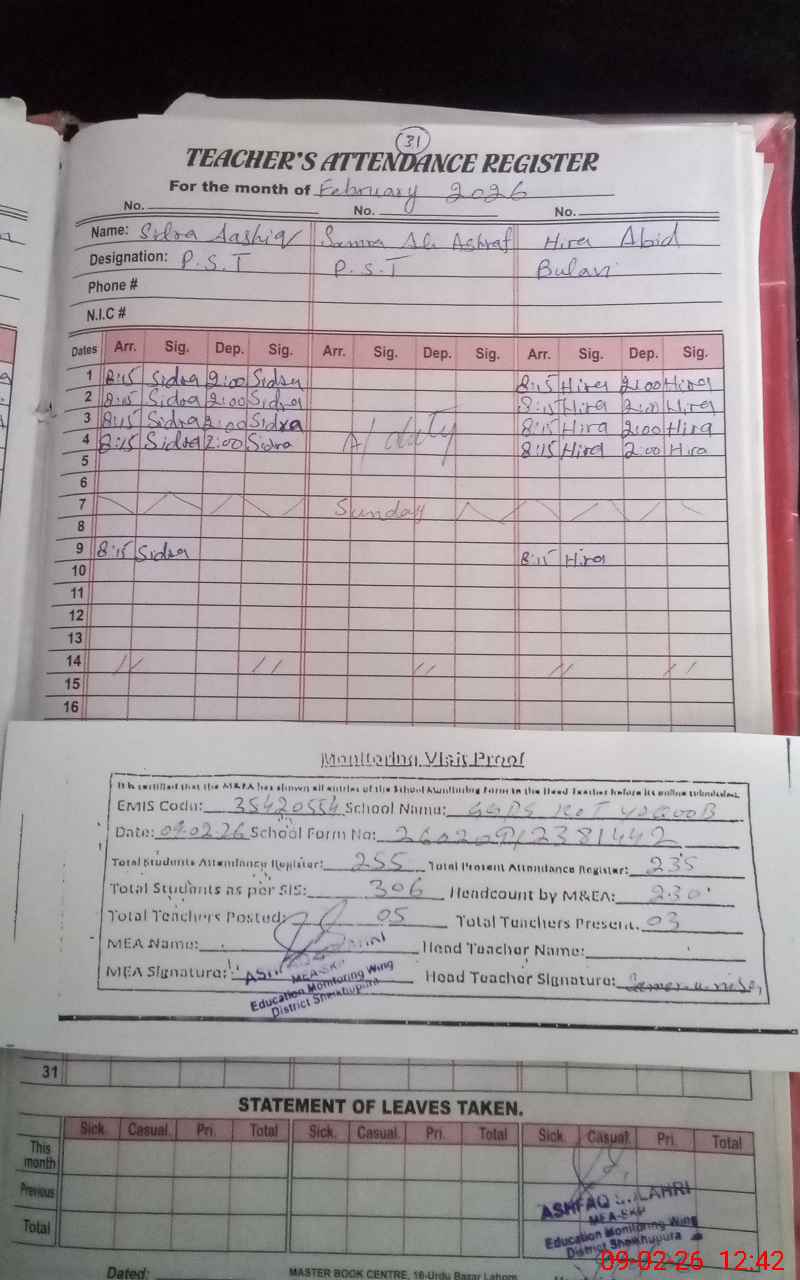 31
TEACHER'S ATTENDANCE REGISTER
For the month of February 2026
No. No. No.
Name: Sidra Aashiq Samra Ali Ashraf Hira Abid
Designation: P.S.T P.S.T
Phone #
N.I.C #
Dates Arr. Sig. Dep. Sig. Arr. Sig. Dep. Sig. Arr. Sig. Dep. Sig.
1 8:15 Sidra 2:00 Sidra 8:15 Hira 2:00 Hira
2 8:15 Sidra 2:00 Sidra 8:15 Hira 2:00 Hira
3 8:15 Sidra 2:00 Sidra duty 8:15 Hira 2:00 Hira
4 8:15 Sidra 2:00 Sidra 8:15 Hira 2:00 Hira
5
6
7 Sunday
8
9 8:15 Sidra 8:15 Hira
10
11
12
13
14 // // // // //
15
16
Monitoring Visit Proof
It is certified that the M&EA has shown all entries of the School Monitoring Form to the Head Teacher before its online submission.
EMIS Code: 35420554 School Name: GGPS KOT YAQOOB
Date: 09.02.26 School Form No:
Total Students Attendance Register: 255 Total Present Attendance Register: 235
Total Students as per SIS: 306 Headcount by M&EA: 230
Total Teachers Posted: 05 Total Teachers Present. 03
MEA Name: Head Teacher Name:
MEA Signature: Head Teacher Signature:
MEA-SKP
Education Monitoring Wing
District Sheikhupura
31
STATEMENT OF LEAVES TAKEN.
Sick. Casual. Pri. Total Sick. Casual. Pri. Total Sick. Casual. Pri. Total
This month
Previous
Total
ASHFAQ
MEA-SKP
Education Monitoring Wing
District Sheikhupura
09-02-26 12:42
Dated: MASTER BOOK CENTRE, 16-Urdu Bazar Lahore